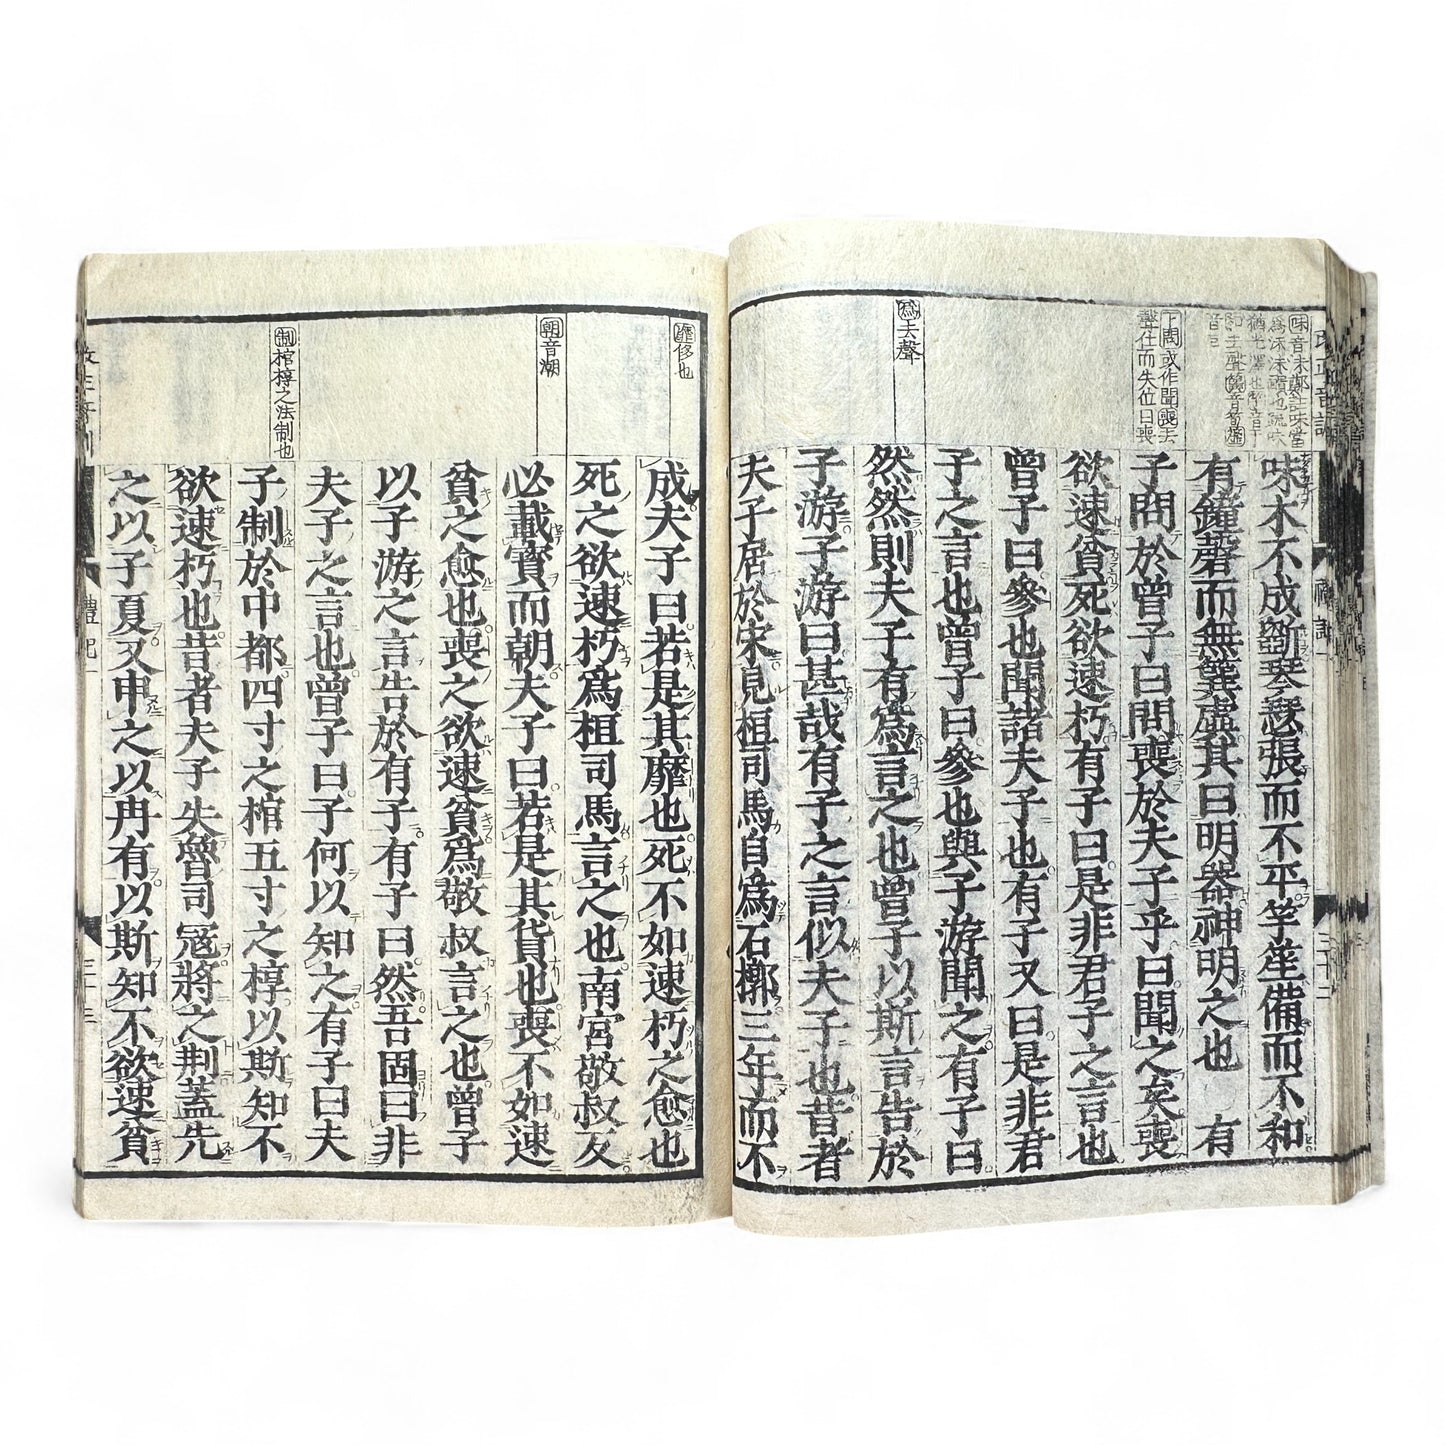 味音沬鄭註味當
爲沬沬靧也疏沬
音巨
上問或作聞喪去
聲仕而失位曰喪
爲去聲
味木不成斲琴瑟張而不平竽笙備而不和
有鐘磬而無簨虡其曰明器神明之也　有
子問於曾子曰問喪於夫子乎曰聞之矣喪
欲速貧死欲速朽有子曰是非君子之言也
曾子曰參也聞諸夫子也有子又曰是非君
子之言也曾子曰參也與子游聞之有子曰
然然則夫子有爲言之也曾子以斯言告於
子游子游曰甚哉有子之言似夫子也昔者
夫子居於宋見桓司馬自爲石槨三年而不
靡侈也
朝音潮
制棺椁之法制也
成夫子曰若是其靡也死不如速朽之愈也
死之欲速朽爲桓司馬言之也南宮敬叔反
必載寳而朝夫子曰若是其貨也喪不如速
貧之愈也喪之欲速貧爲敬叔言之也曾子
以子游之言告於有子有子曰然吾固曰非
夫子之言也曾子曰子何以知之有子曰夫
子制於中都四寸之棺五寸之椁以斯知不
欲速朽也昔者夫子失魯司冦將之荆蓋先
之以子夏又申之以冉有以斯知不欲速貧
禮記一
三十三